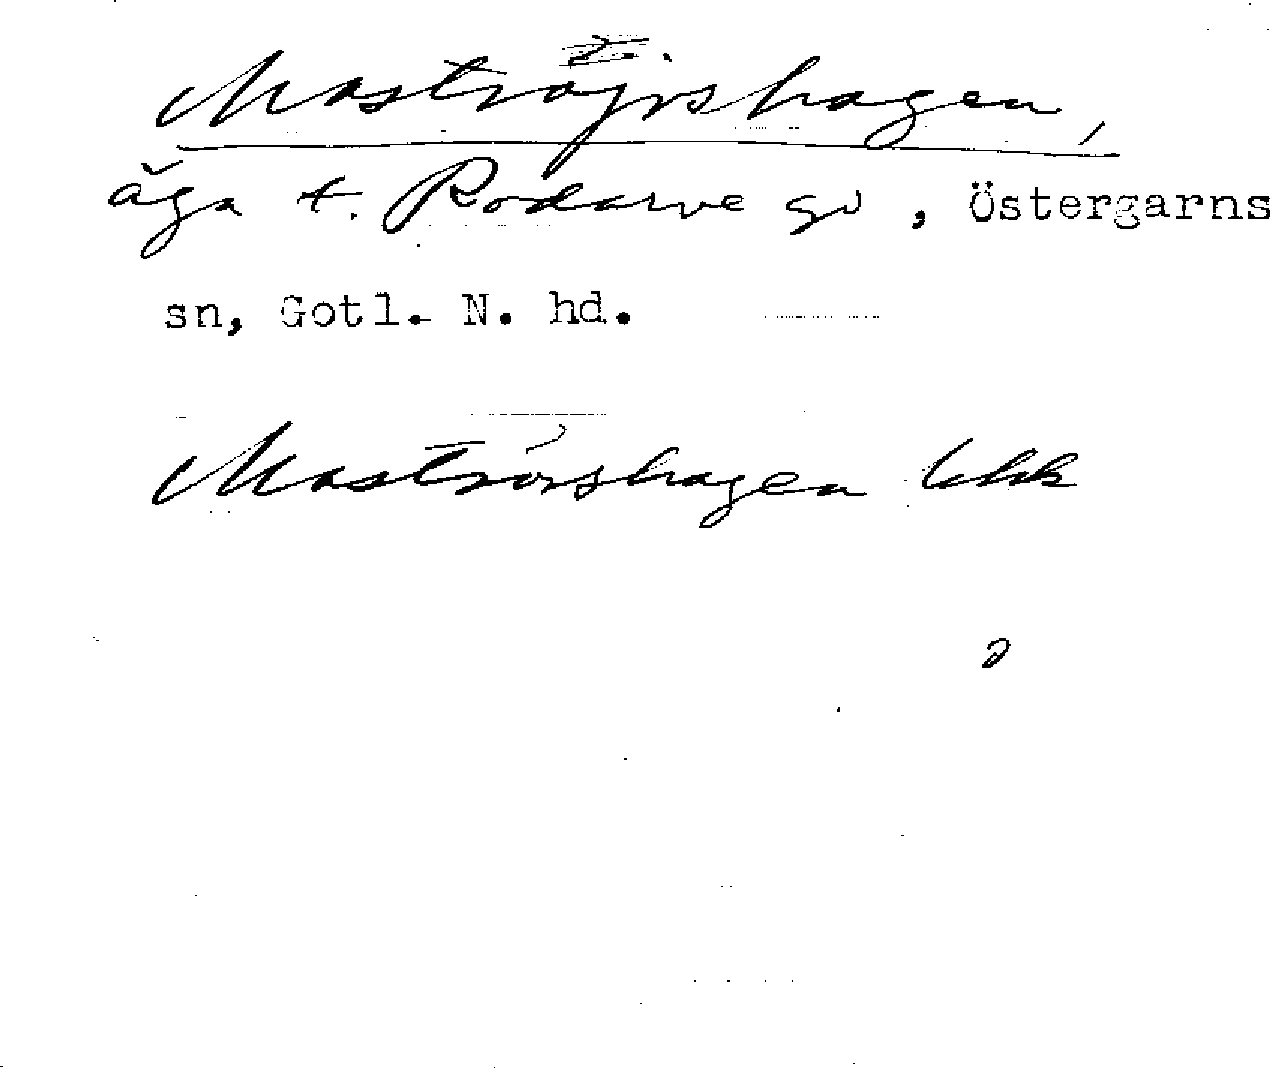 Maströjrshagen,
äga t. Rodarve gd, Östergarns
sn, Gotl. N. hd.
Maströrshagen